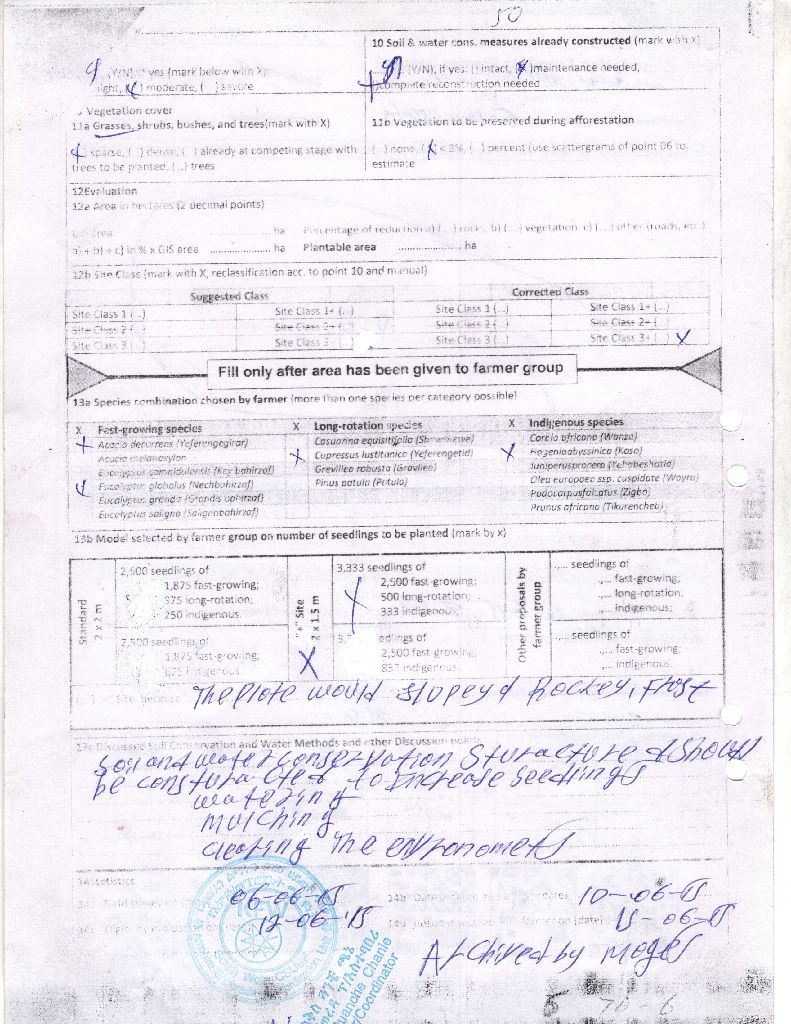 50
10 Soil & water cons. measures already constructed (mark with X)
y (Y/N), if yes (mark below with X):
(Y/N), if yes: ( ) intact, (X) maintenance needed,
( ) moderate, ( ) severe
complete reconstruction needed
Vegetation cover
11a Grasses, shrubs, bushes, and trees(mark with X)
11b Vegetation to be preserved during afforestation
sparse, ( ) dense, ( ) already at competing stage with
( ) none, (X) < 3%, ( ) percent (use scattergrams of point 06 to
trees to be planted, (..) trees
estimate
12Evaluation
12a Area in hectares (2 decimal points)
GIS area ............... ha Percentage of reduction a) (...) rocks, b) (...) vegetation c) (...) other (roads, etc.)
a) + b) + c) in % x GIS area ............... ha Plantable area ............... ha
12b Site Class (mark with X, reclassification acc. to point 10 and manual)
Suggested Class Corrected Class
Site Class 1 (..) Site Class 1+ (..) Site Class 1 (..) Site Class 1+ (..)
Site Class 2 (..) Site Class 2+ (..) Site Class 2 (..) Site Class 2+ (..)
Site Class 3 (..) Site Class 3 Site Class 3 (..) Site Class 3+ (..) X
Fill only after area has been given to farmer group
13a Species combination chosen by farmer (more than one species per category possible)
X Fast-growing species X Long-rotation species X Indigenous species
Acacia decurrens (Yeferengegirar) Casuarina equisitifolia Cordia africana (Wanza)
Acacia melanoxylon X Cupressus lustitanica (Yeferengetid) X Hageniaabyssinica (Koso)
Eucalyptus camaldulensis (Key bahirzaf) Grevillea robusta (Gravilea) Juniperusprocera (Yehabeshatid)
Eucalyptus globulus (Nechbahirzaf) Pinus patula (Patula) Olea europaea ssp. cuspidate (Wayra)
Eucalyptus grandis (Grandis bahirzaf) Podocarpusfalcatus (Zigba)
Eucalyptus saligna (Salignabahirzaf) Prunus africana (Tikurenchet)
13b Model selected by farmer group on number of seedlings to be planted (mark by x)
Standard 2 x 2 m
2,500 seedlings of
1,875 fast-growing;
375 long-rotation;
250 indigenous.
2,500 seedlings of
1,875 fast-growing;
625 indigenous
"+" Site 2 x 1.5 m
X
3,333 seedlings of
2,500 fast-growing;
500 long-rotation;
333 indigenous
X
seedlings of
2,500 fast-growing;
833 indigenous.
Other proposals by farmer group
..... seedlings of
..... fast-growing;
..... long-rotation;
..... indigenous;
..... seedlings of
..... fast-growing;
..... indigenous.
Site because The plote would slopey d Rockey, Frost
13c Discussed Soil Conservation and Water Methods and other Discussion points
Soil and water conservation Sturacture d Should
be consturacted to increase seedlings
watering
mulching
cleating the environomets
14Statistics
06-06-15 10-06-15
12-06-15 15-06-15
Archived by Moges
Coordinator